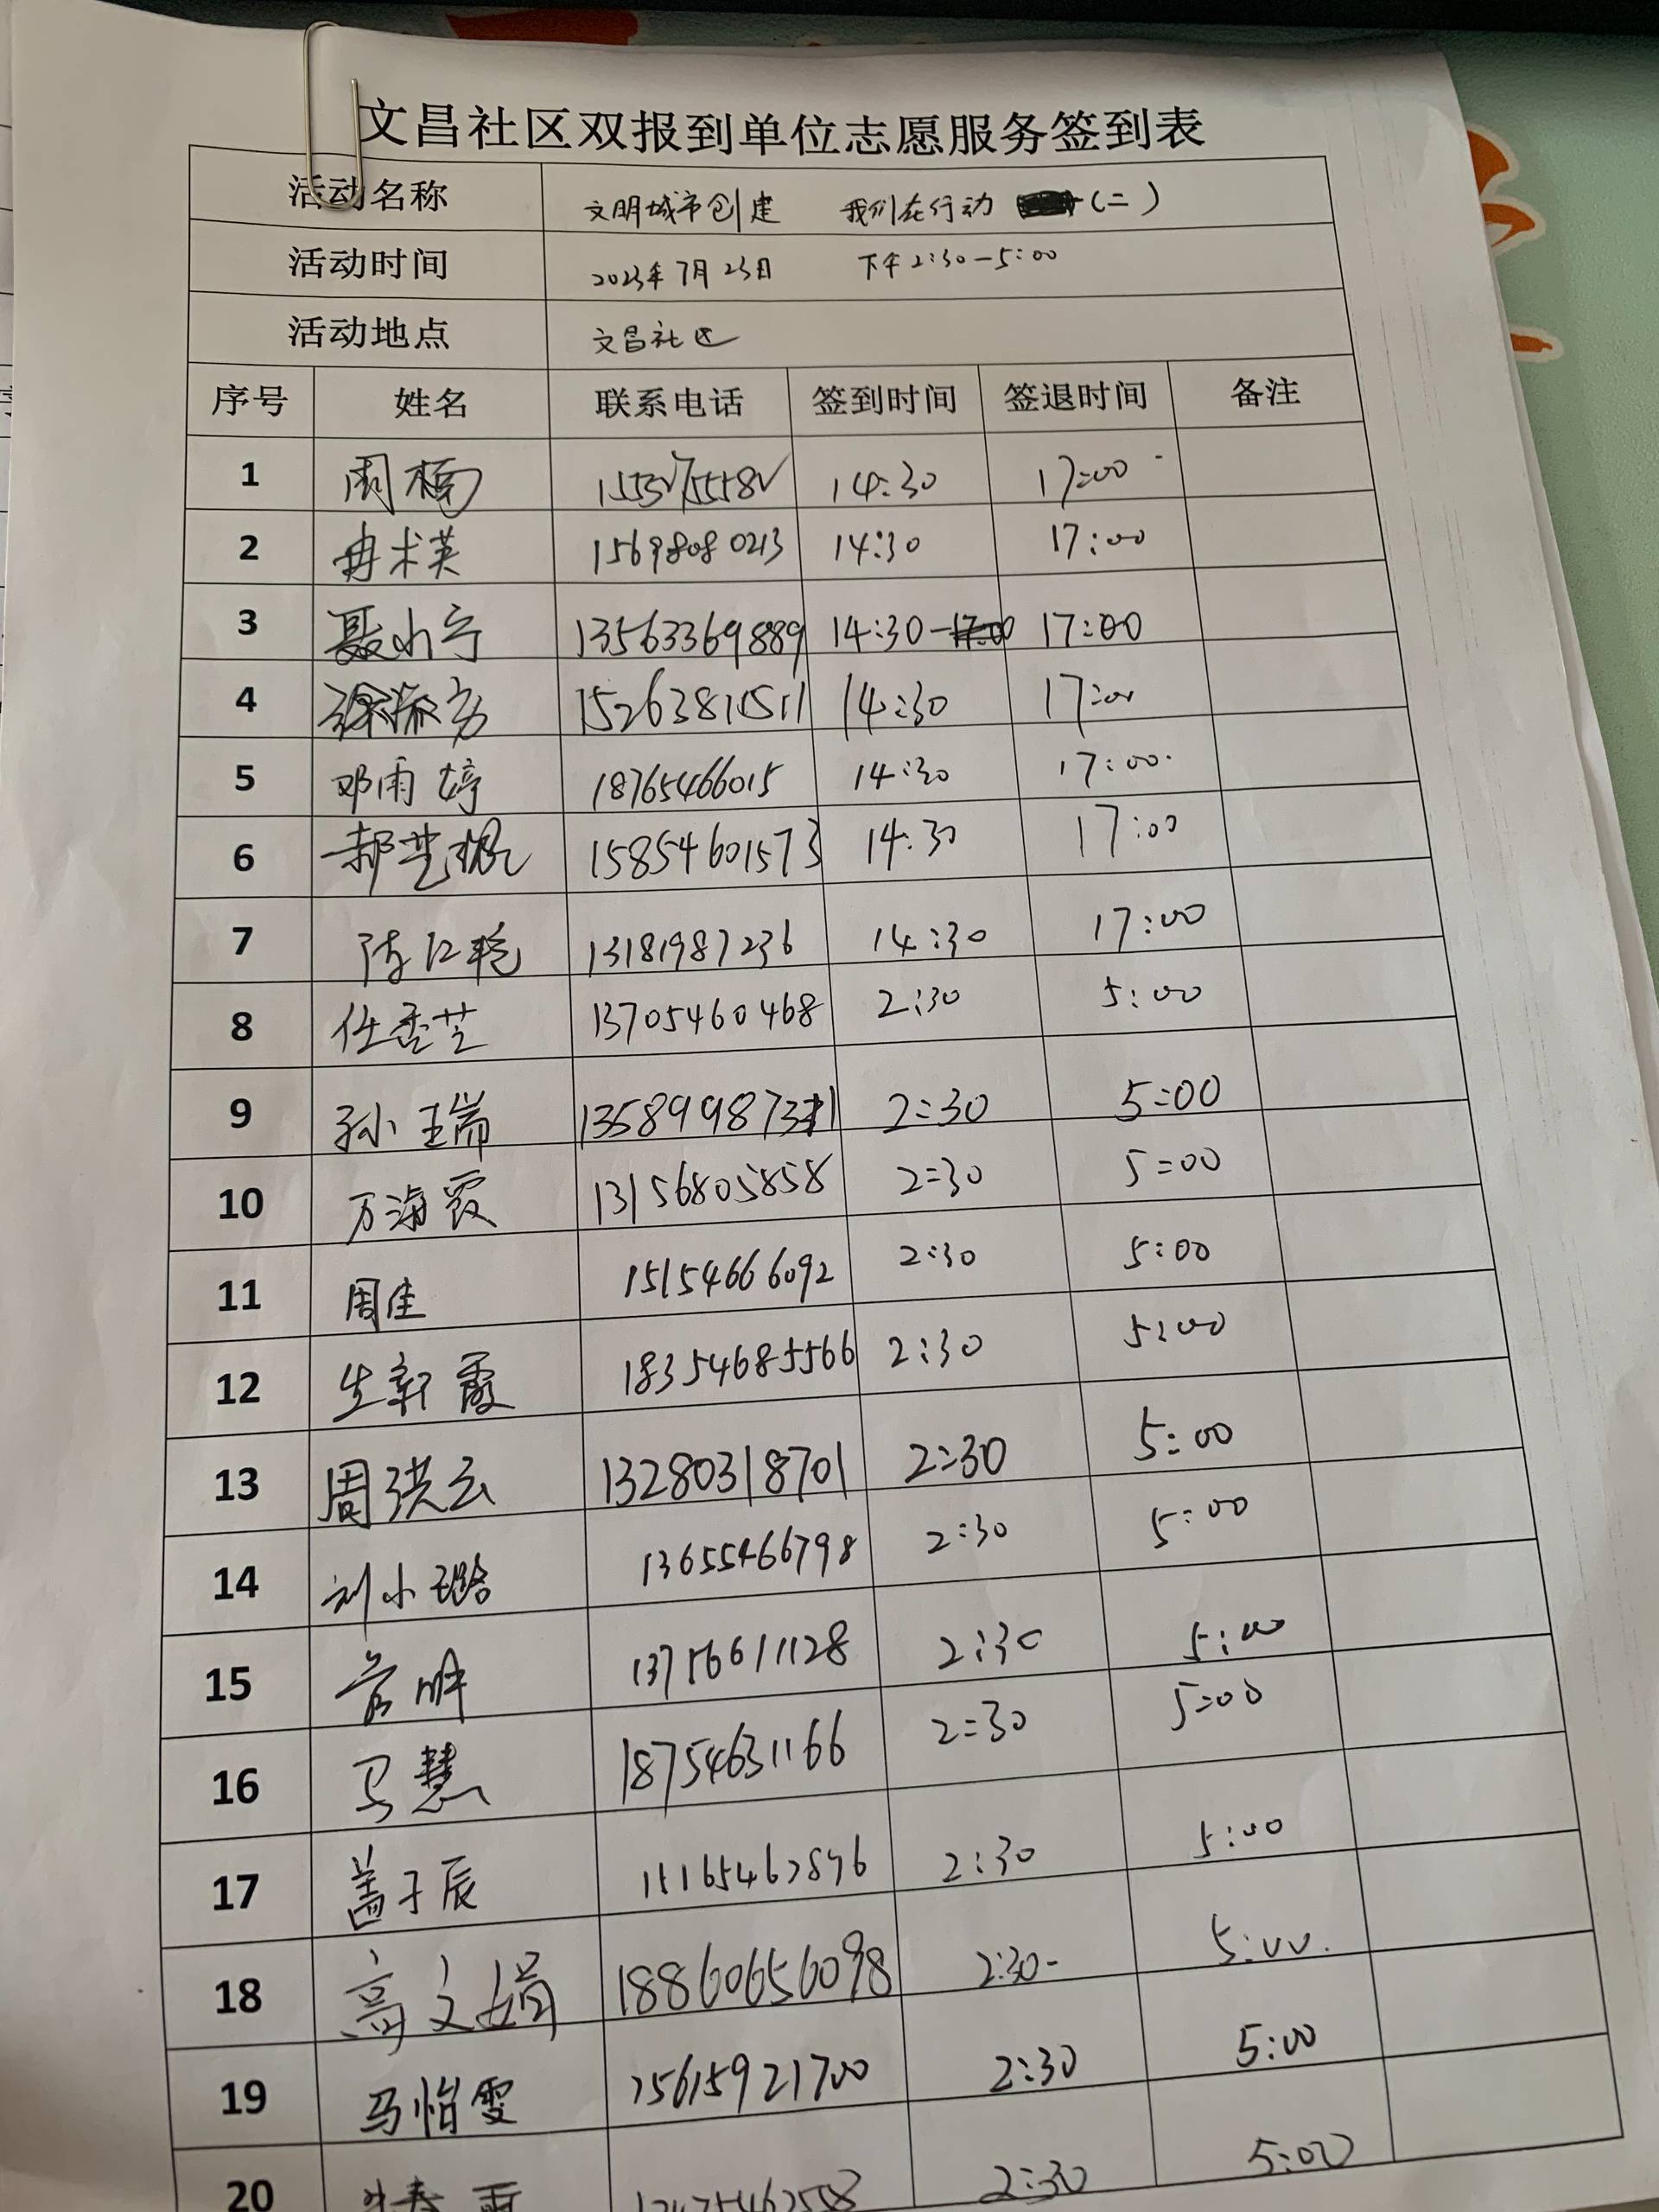 文昌社区双报到单位志愿服务签到表
活动名称 文明城市创建 我们在行动 (二)
活动时间 2023年7月23日 下午2:30-5:00
活动地点 文昌社区
序号 姓名 联系电话 签到时间 签退时间 备注
1 周楠 14:30 17:00
2 冉术英 15698080213 14:30 17:00
3 聂小宁 13563369889 14:30 17:00
4 15263811511 14:30 17:00
5 邓雨婷 18765466015 14:30 17:00
6 郝艺 15854601573 14:30 17:00
7 陈红艳 13181987236 14:30 17:00
8 任香芝 13705460468 2:30 5:00
9 孙瑞 2:30 5:00
10 万海霞 13156805858 2:30 5:00
11 周佳 15154666092 2:30 5:00
12 生新霞 18354685566 2:30 5:00
13 周洪云 13280318701 2:30 5:00
14 刘小璐 13655466798 2:30 5:00
15 13756611128 2:30 5:00
16 马慧 18754631166 2:30 5:00
17 盖子辰 2:30 5:00
18 高文娟 18860656098 2:30 5:00
19 马怡雯 15615921700 2:30 5:00
20 2:30 5:00